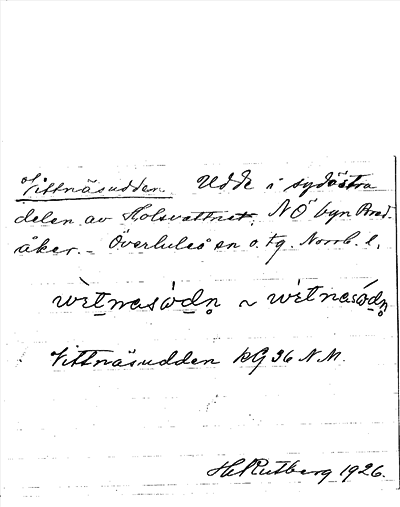 Vittnäsudden. Udde i sydöstra
delen av Holsvattnet, NÖ byn Bred-
åker. – Överluleå sn o. tg. Norrb. l.
wètnesòdn ~ wètnesódn
Vittnäsudden kG 36 N.M.
H. Rutberg 1926.